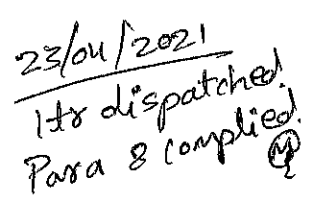 23/04/2021
ltr dispatched.
Para 8 complied.